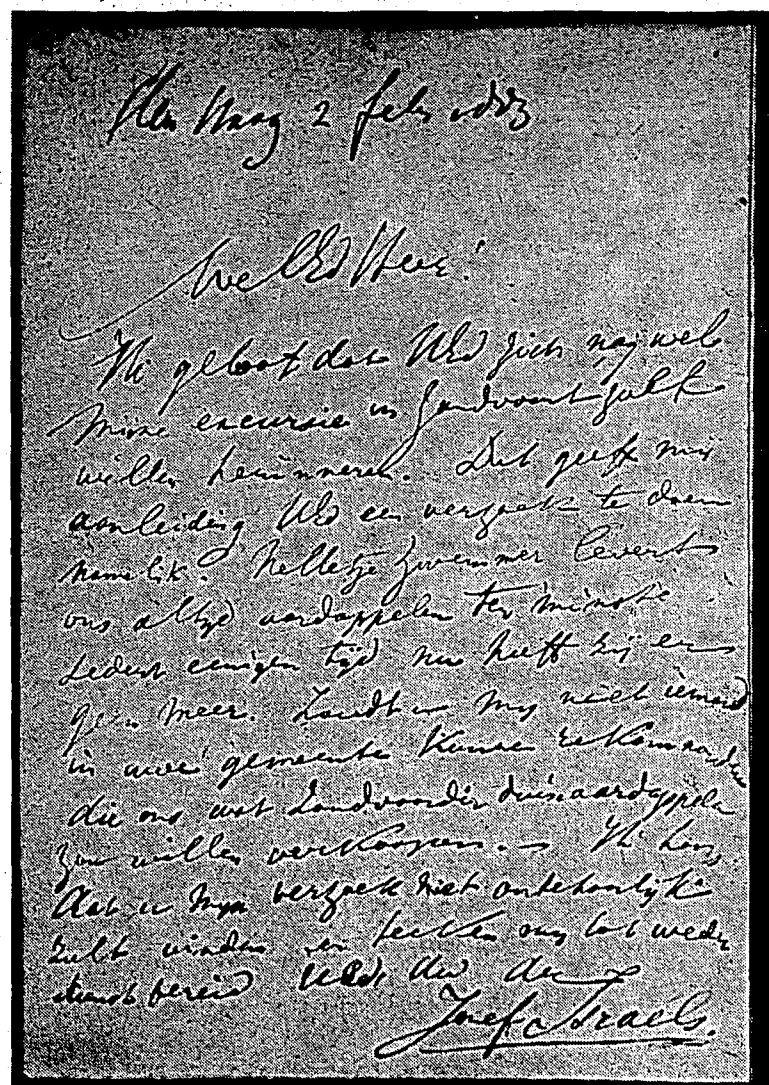 den Haag 2 feb 1883
WelEd Heer!
Ik geloof dat UEd zich nog wel
mijne excursie in Zandvoort zult
willen herinneren. Dit geeft mij
aanleiding UEd een verzoek te doen
namelik. Nelletje Zwemmer levert
ons altijd aardappelen ten minste
sedert eenigen tijd nu heeft zij er
geen meer. Zoudt u mij niet iemand
in uwe gemeente kunnen rekommanderen
die ons wat Zandvoordse duinaardappelen
zou willen verkoopen. — Ik hoop
dat u mijn verzoek niet onbehoorlijk
zult vinden en teeken mij tot weder
dienst bereid UEd dw d
Jozef Israels.